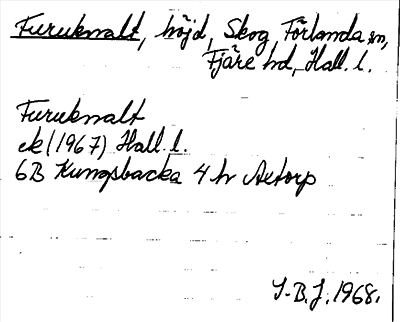 Furuknalt, höjd, Skog Förlanda sn,
Fjäre hd, Hall. l.
Furuknalt
ek (1967) Hall. l.
6B Kungsbacka 4 h Axtorp
S.B.J. 1968.